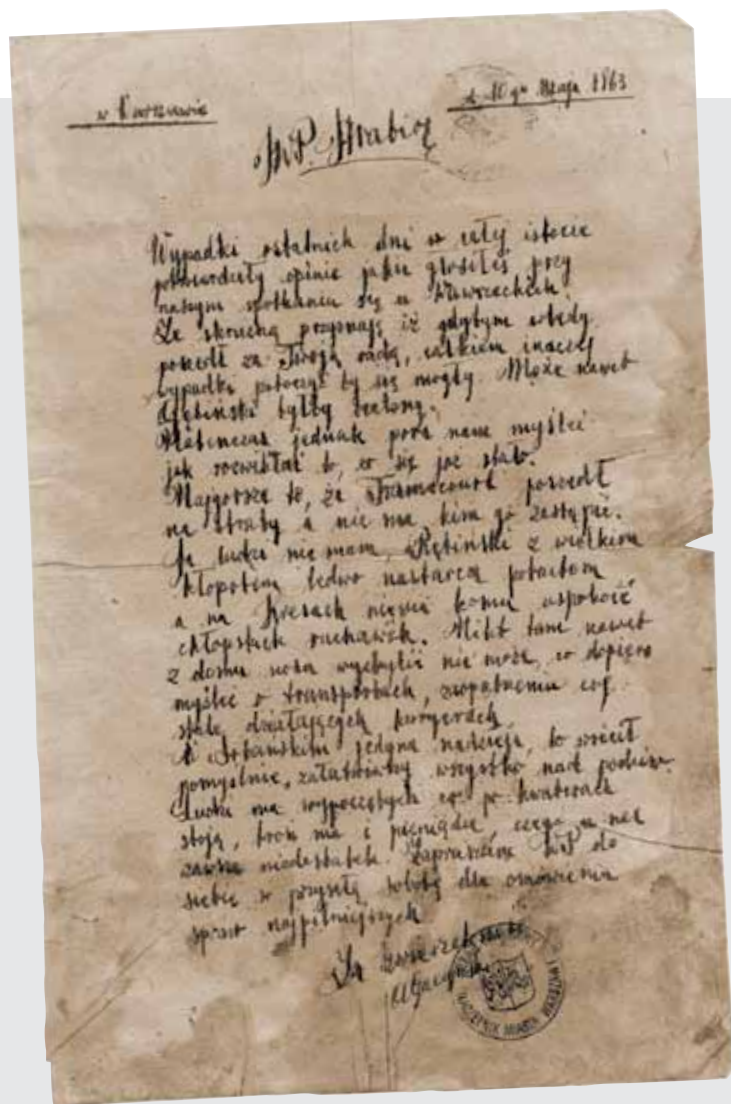 w Warszawie
d. 10 go Maja 1863
MP. Hrabio
Wypadki ostatnich dni w całej istocie
potwierdziły opinie jakie głosiłeś przy
naszym spotkaniu się w
Ze skruchą przyznaję iż gdybym wtedy
poszedł za Twoją radą, całkiem inaczej
wypadki potoczyć by się mogły. Może nawet
byłby
jednak pora nam myśleć
jak to, co się już stało.
Najgorsze to, że poszedł
na straty a nie ma kim go zastąpić.
Ja ludzi nie mam, z wielkim
kłopotem ledwo nastarcza
a na Kresach niema komu uspokoić
chłopskich ruchawek. Nikt tam nawet
z domu nosa wychylić nie może, co dopiero
myśleć o transportach, zaopatrzeniu czy
stale działających kuryerach.
W Urbańskim jedyna nadzieja, bo wrócił
pomyślnie, załatwiwszy wszystko nad podziw.
Ludzi ma wypoczętych co po kwaterach
stoją, broń ma i pieniądze, czego u nas
zawsze niedostatek. Zapraszam WP do
siebie w przyszłą sobotę dla omówienia
spraw najpilniejszych
Za
NACZELNIK MIASTA WARSZAWY